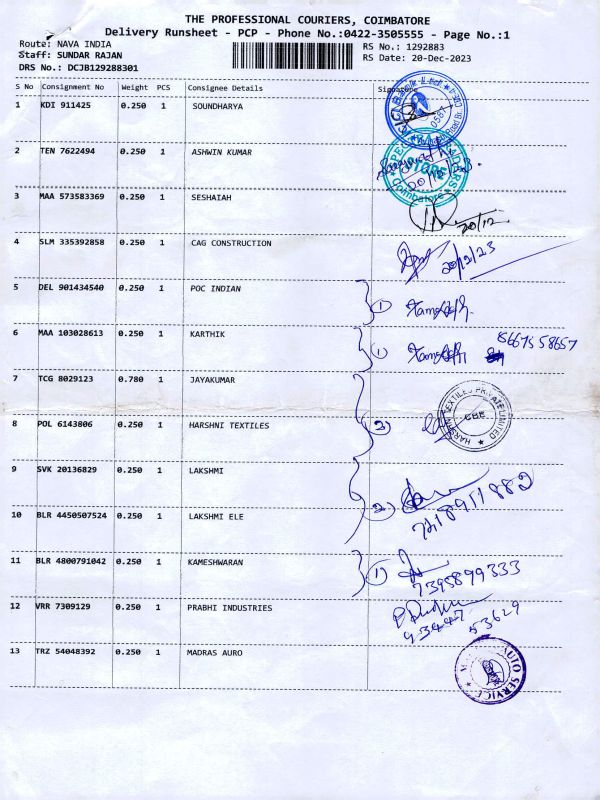 THE PROFESSIONAL COURIERS, COIMBATORE
Delivery Runsheet - PCP - Phone No.:0422-3505555 - Page No.:1
Route: NAVA INDIA RS No.: 1292883
Staff: SUNDAR RAJAN RS Date: 20-Dec-2023
DRS No.: DCJB129288301
S No Consignment No Weight PCS Consignee Details Signature
1 KDI 911425 0.250 1 SOUNDHARYA
2 TEN 7622494 0.250 1 ASHWIN KUMAR STORE Coimbatore
3 MAA 573583369 0.250 1 SESHAIAH 20/12
4 SLM 335392858 0.250 1 CAG CONSTRUCTION 20/12/23
5 DEL 901434540 0.250 1 POC INDIAN 1
6 MAA 103028613 0.250 1 KARTHIK 1 8667558657
7 TCG 8029123 0.780 1 JAYAKUMAR
8 POL 6143806 0.250 1 HARSHNI TEXTILES 2 HARSHNI TEXTILES PRIVATE LIMITED CBE
9 SVK 20136829 0.250 1 LAKSHMI
10 BLR 4450507524 0.250 1 LAKSHMI ELE 2
11 BLR 4800791042 0.250 1 KAMESHWARAN 1 7395899333
12 VRR 7309129 0.250 1 PRABHI INDUSTRIES 53629
13 TRZ 54048392 0.250 1 MADRAS AURO AUTO SERVICE